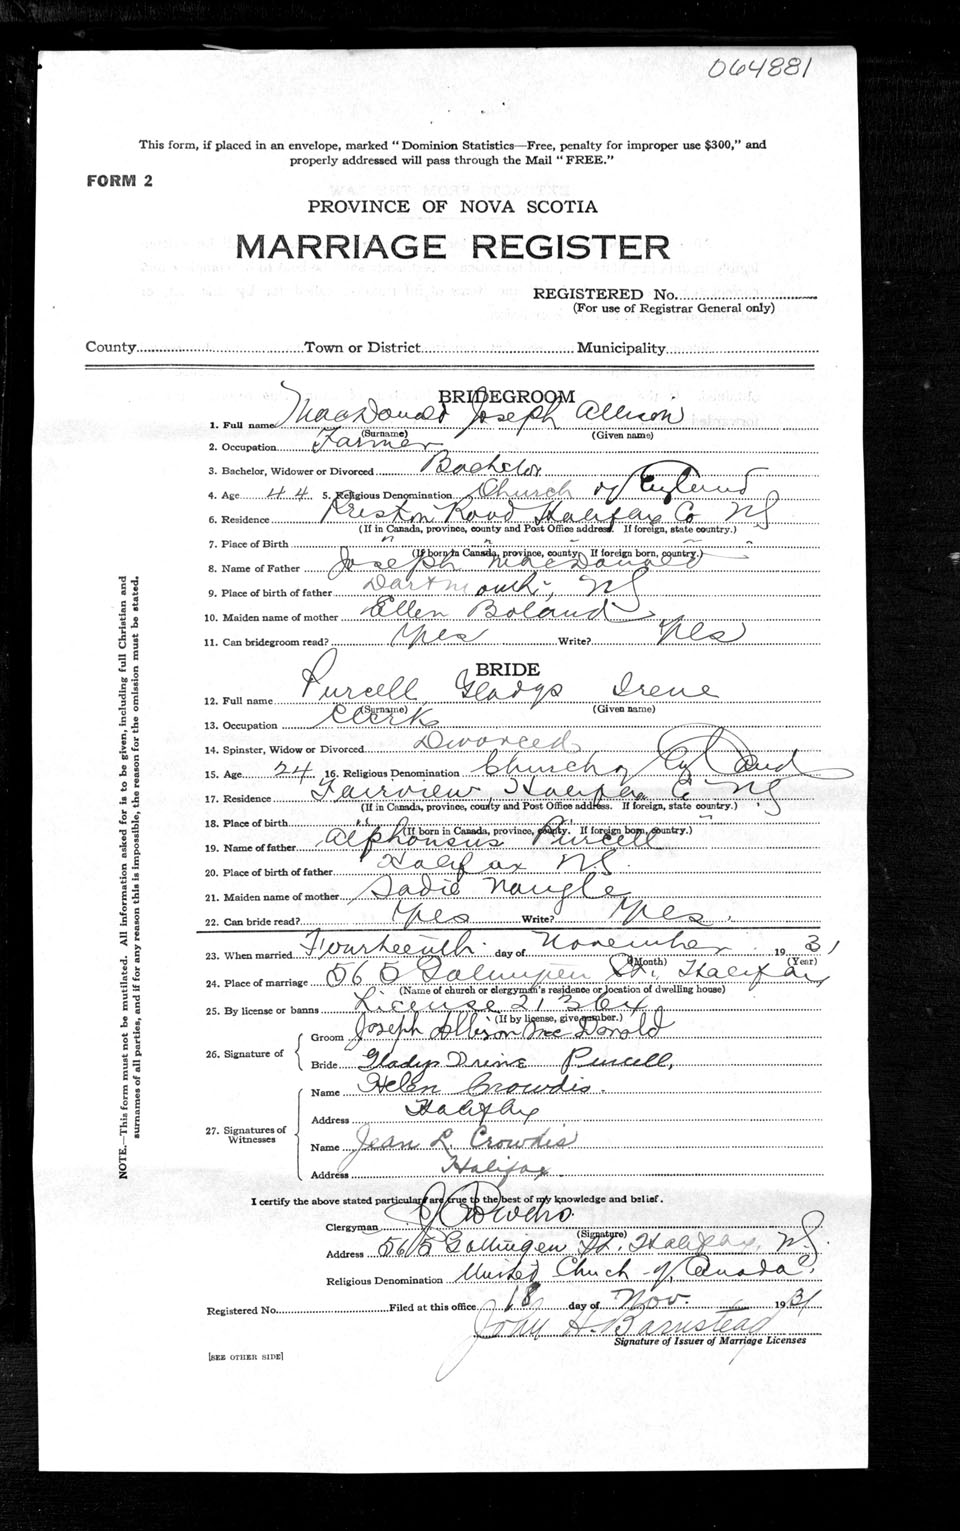 064881
This form, if placed in an envelope, marked "Dominion Statistics—Free, penalty for improper use $300," and
properly addressed will pass through the Mail "FREE."
FORM 2
PROVINCE OF NOVA SCOTIA
MARRIAGE REGISTER
REGISTERED No.
(For use of Registrar General only)
County Town or District Municipality
BRIDEGROOM
1. Full name MacDonald Joseph Allison
(Surname) (Given name)
2. Occupation Farmer
3. Bachelor, Widower or Divorced Bachelor
4. Age 44 5. Religious Denomination Church of England
6. Residence Preston Road Halifax Co NS
(If in Canada, province, county and Post Office address. If foreign, state country.)
7. Place of Birth " " " " "
(If born in Canada, province, county. If foreign born, country.)
8. Name of Father Joseph MacDonald
9. Place of birth of father Dartmouth, NS
10. Maiden name of mother Ellen Boland
11. Can bridegroom read? Yes Write? Yes
BRIDE
12. Full name Purcell Gladys Irene
(Surname) (Given name)
13. Occupation Clerk
14. Spinster, Widow or Divorced Divorced
15. Age 24 16. Religious Denomination Church of England
17. Residence Fairview, Halifax Co NS
(If in Canada, province, county and Post Office address. If foreign, state country.)
18. Place of birth " "
(If born in Canada, province, county. If foreign born, country.)
19. Name of father Alphonsus Purcell
20. Place of birth of father Halifax NS
21. Maiden name of mother Sadie Naugle
22. Can bride read? Yes Write? Yes.
23. When married Fourteenth day of November 1931
(Month) (Year)
24. Place of marriage 565 St., Halifax
(Name of church or clergyman's residence or location of dwelling house)
25. By license or banns License
(If by license, give number.)
26. Signature of
Groom Joseph Allison MacDonald
Bride Gladys Irene Purcell,
27. Signatures of Witnesses
Name Helen Crowdis.
Address Halifax
Name Jean L. Crowdis
Address Halifax
I certify the above stated particulars are true to the best of my knowledge and belief.
Clergyman Crowdis
(Signature)
Address 565 Gottingen St. Halifax, N.S.
Religious Denomination United Church of Canada
Registered No. Filed at this office 18 day of Nov. 1931
John H. Barnstead
Signature of Issuer of Marriage Licenses
[SEE OTHER SIDE]
NOTE.—This form must not be mutilated. All information asked for is to be given, including full Christian and
surnames of all parties, and if for any reason this is impossible, the reason for the omission must be stated.